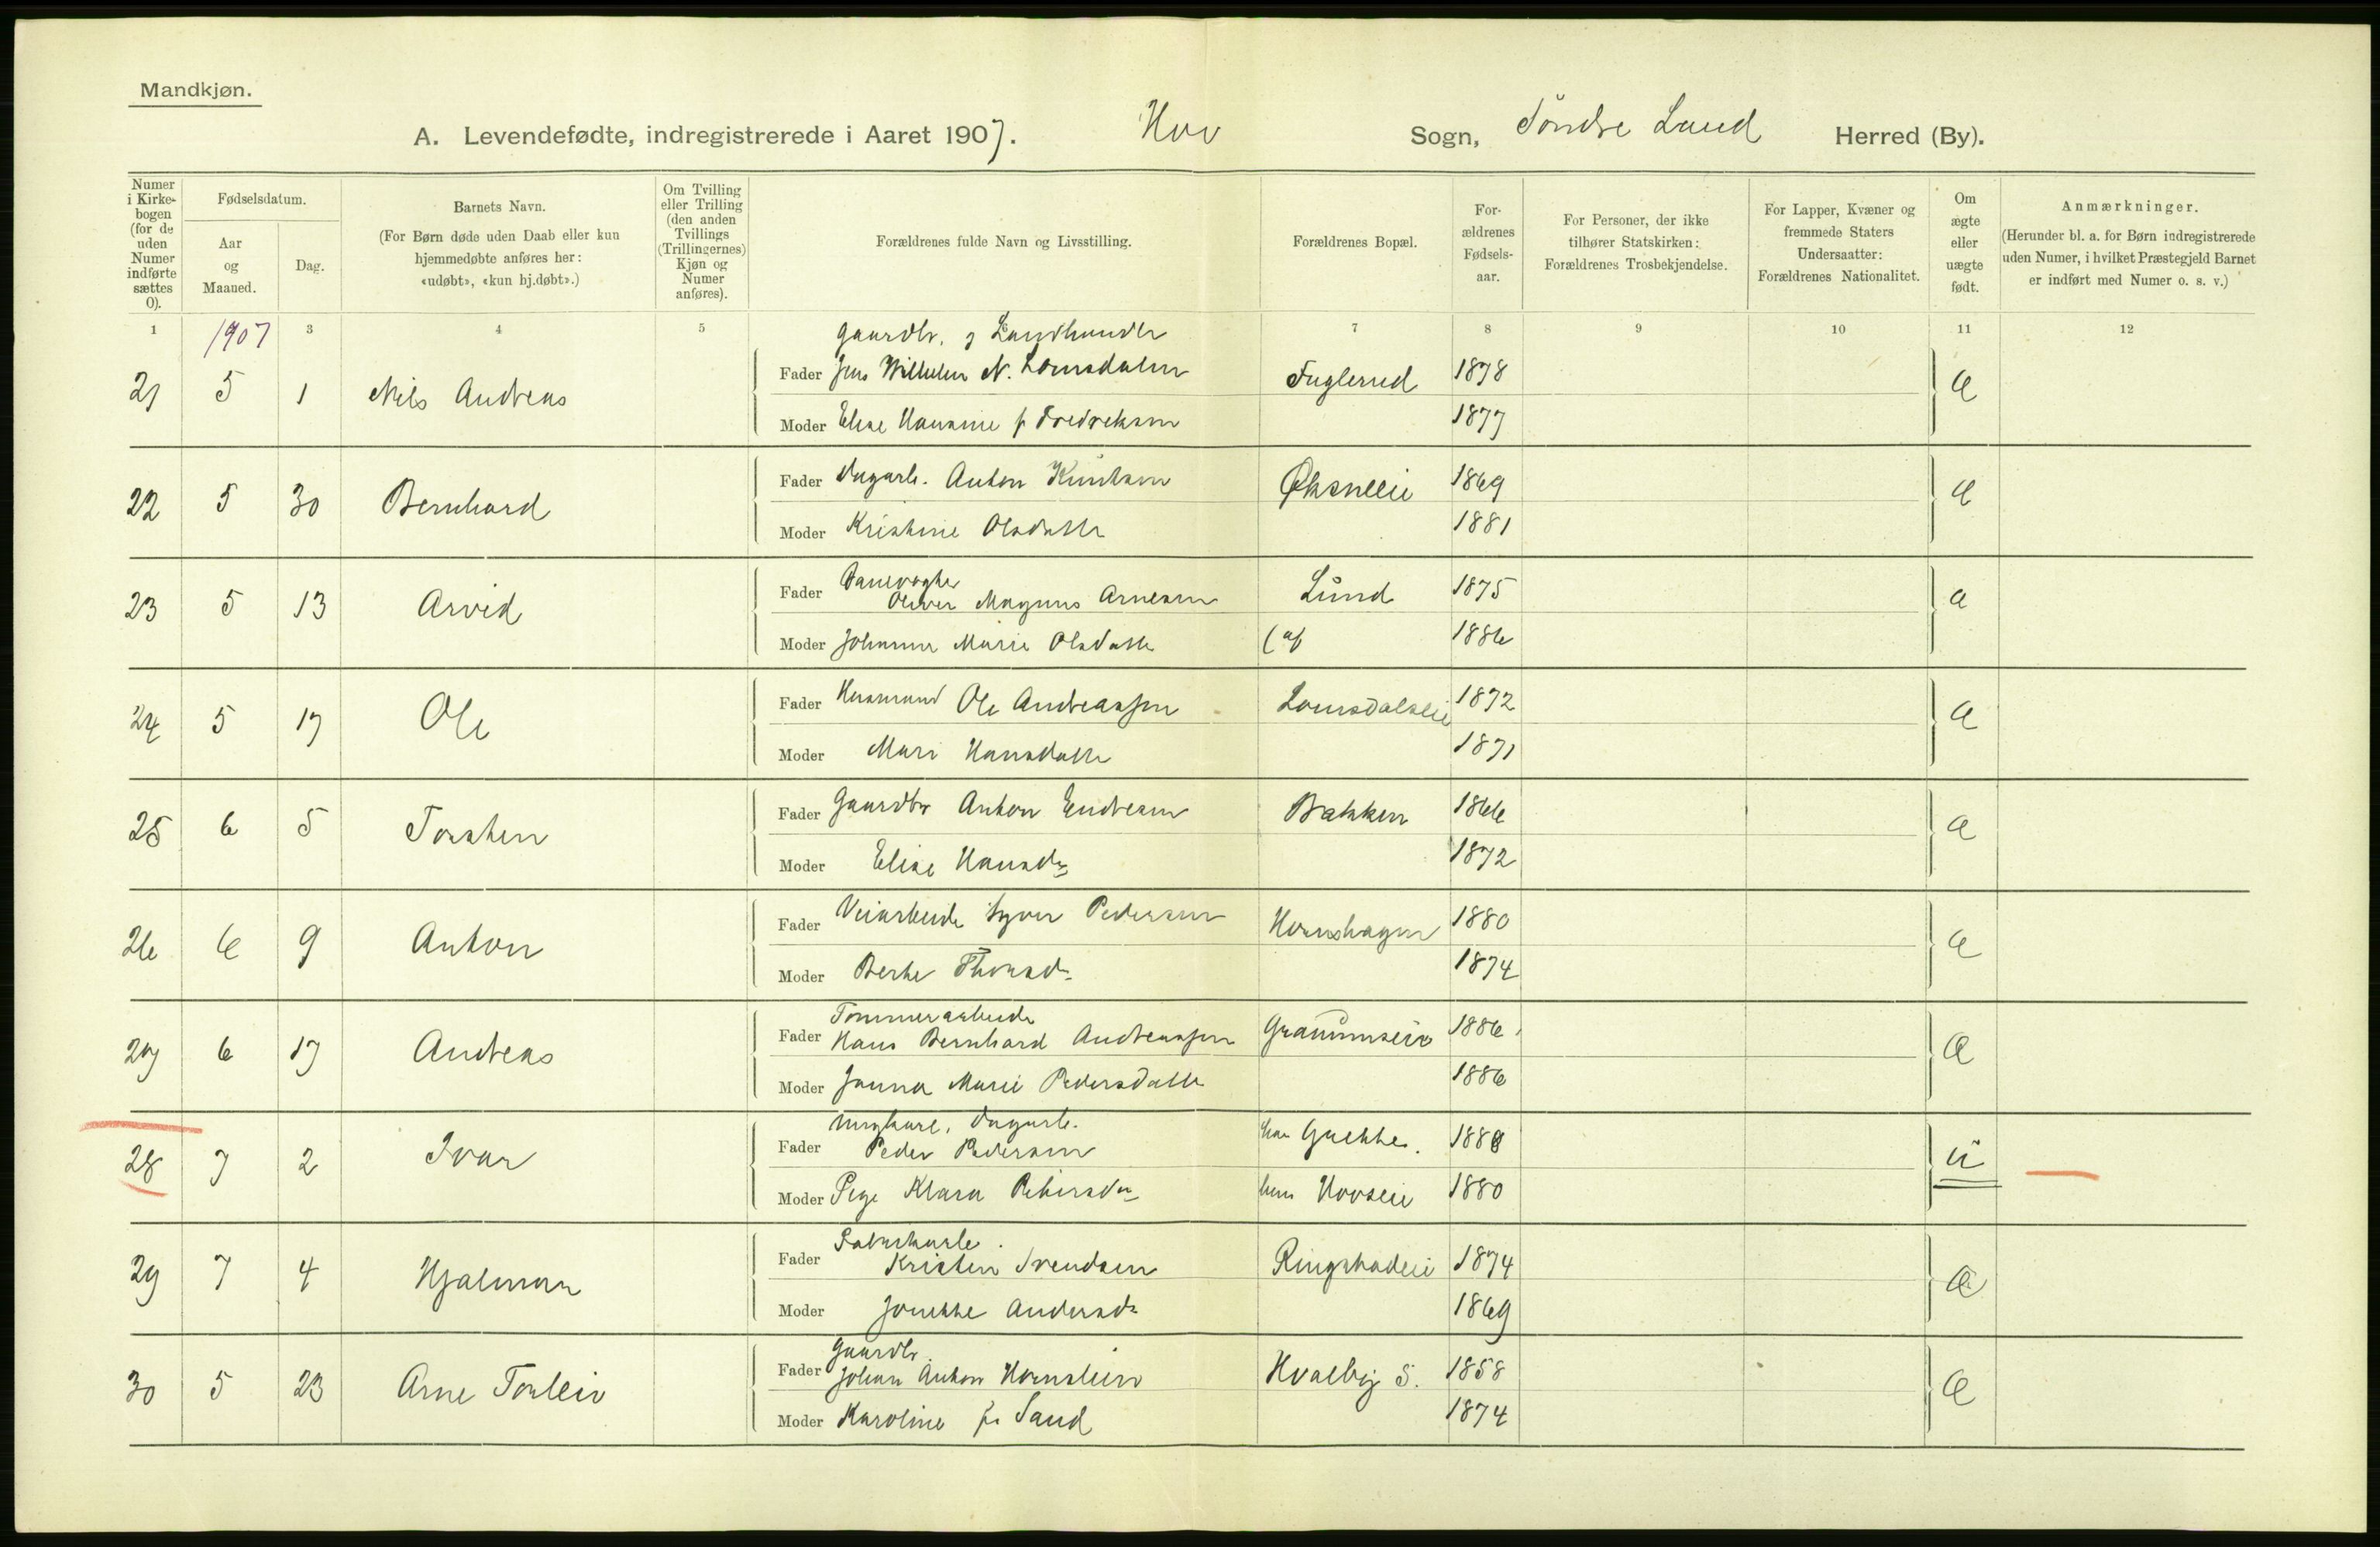 Mandkjøn.
A. Levendefødte, indregistrerede i Aaret 1907. Hov Sogn, Söndre Land Herred (By).
Numer i Kirkebogen (for de uden Numer indførte sættes 0).
Fødselsdatum.
Aar og Maaned.
Dag.
Barnets Navn.
(For Børn døde uden Daab eller kun hjemmedøbte anføres her: «udøbt», «kun hj.døbt».)
Om Tvilling eller Trilling (den anden Tvillings (Trillingernes) Kjøn og Numer anføres).
Forældrenes fulde Navn og Livsstilling.
Forældrenes Bopæl.
Forældrenes Fødselsaar.
For Personer, der ikke tilhører Statskirken: Forældrenes Trosbekjendelse.
For Lapper, Kvæner og fremmede Staters Undersaatter: Forældrenes Nationalitet.
Om ægte eller uægte født.
Anmærkninger.
(Herunder bl. a. for Børn indregistrerede uden Numer, i hvilket Præstegjeld Barnet er indført med Numer o. s. v.)
1 1907 3 4 5 7 8 9 10 11 12
Gaardbr. og Landhandler
21 5 1 Nils Andreas Fader Jens Wilhelm N. Lomsdalen Fuglerud 1878 Æ
Moder Elise Hansine f. Fredreksen 1877
22 5 30 Bernhard Fader Dagarb. Anton Knutsen Øksneeie 1869 Æ
Moder Kristine Olsdatter 1881
23 5 13 Arvid Fader Banevogter Oliver Magnus Arnesen Lund 1875 Æ
Moder Johanne Marie Olsdatter 1886
24 5 17 Ole Fader Husmand Ole Andreassen Lomsdalseie 1872 Æ
Moder Mari Hansdatter 1871
25 6 5 Torsten Fader Gaardbr Anton Endresen Bakken 1866 Æ
Moder Elise Hansdr 1872
26 6 9 Anton Fader Veiarbeider Syver Pedersen Hornshagen 1880 Æ
Moder Berte Thorsdr 1874
Tømmerarbeider
27 6 17 Andreas Fader Hans Bernhard Andreassen 1886 Æ
Moder Janna Marie Pedersdatter 1886
Ungkarl, Dagarb.
28 7 2 Ivar Fader Peder Pedersen han 1888 u
Moder Pige Klara Petersdr hun Hovseie 1880
29 7 4 Hjalmar Fader Kristen Svendsen 1874 Æ
Moder Jonette Andersdr 1869
Gaardbr.
30 5 23 Arne Torleiv Fader Johan Anton Hornslien Hvalby S. 1858 Æ
Moder Karoline f. Sand 1874